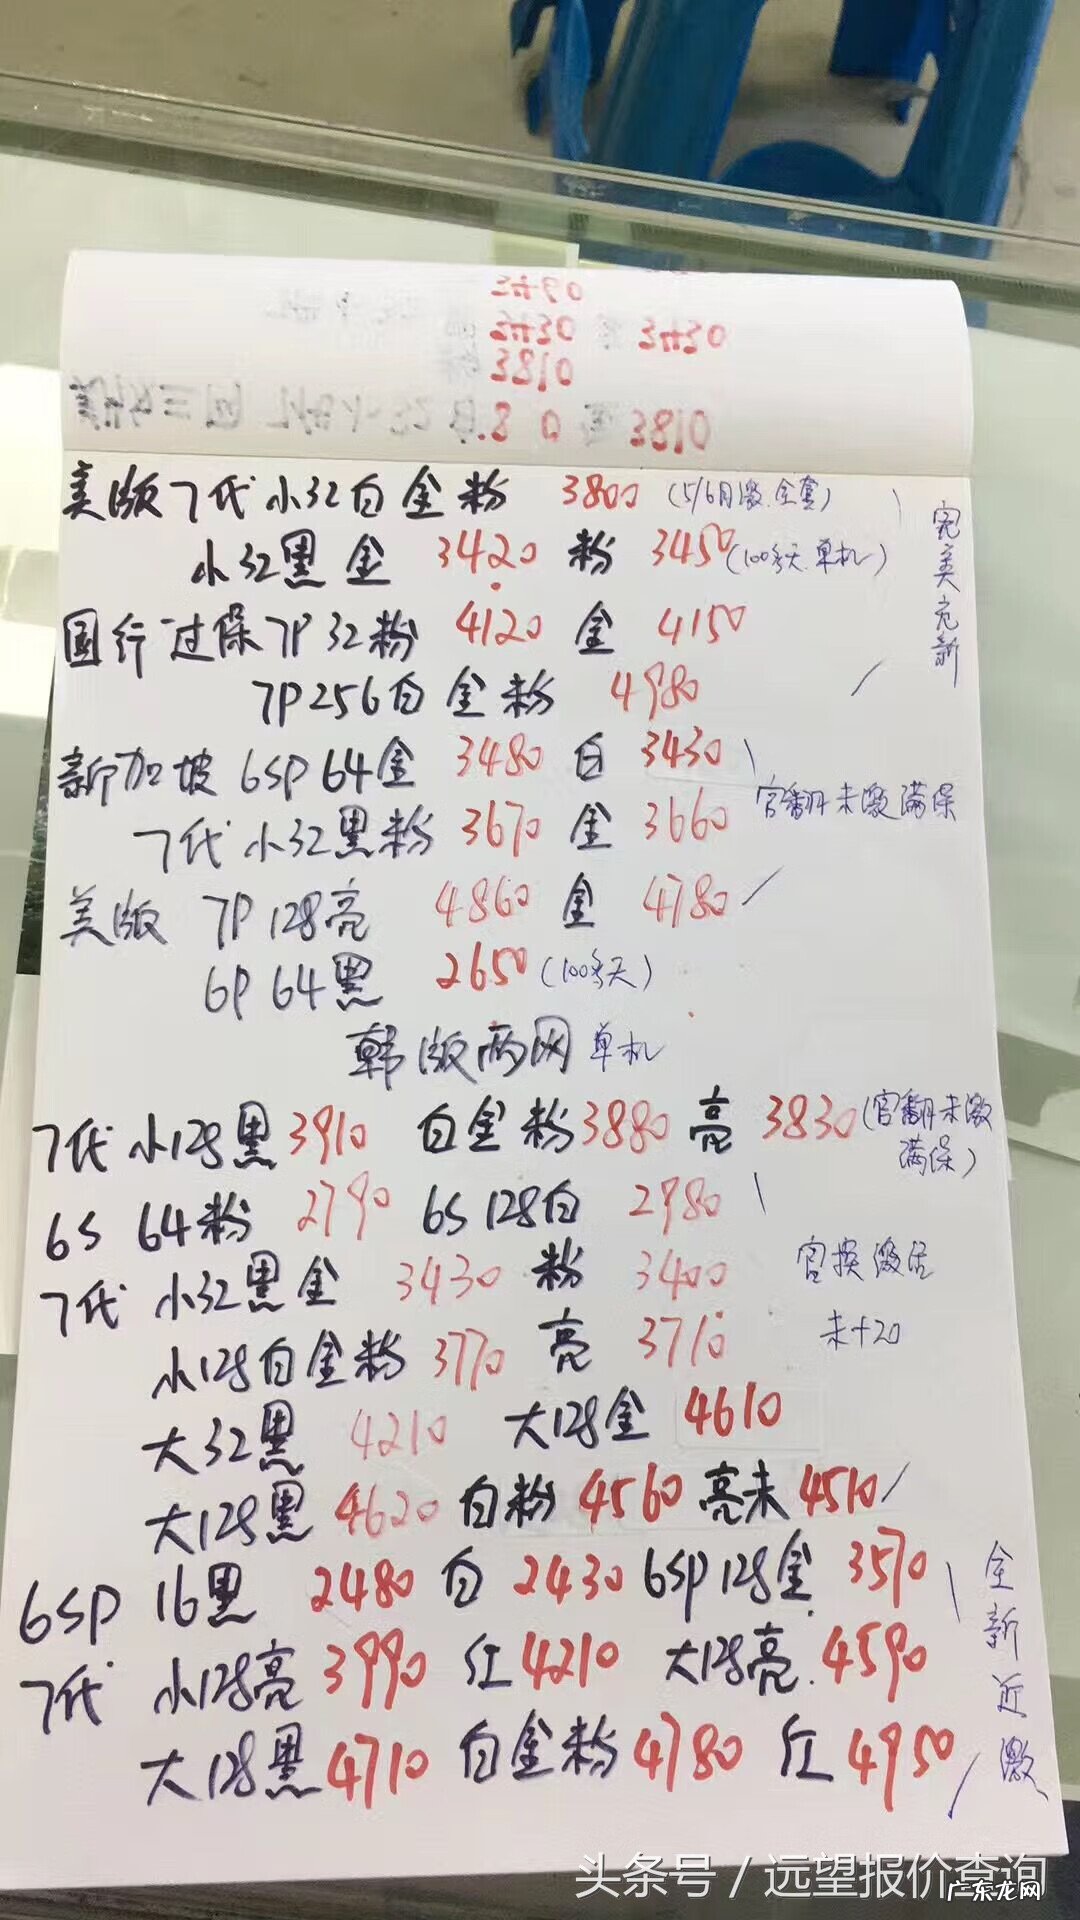 3430
3810
3810
美版7代小32白金粉 3800 (5/6月激.全套)
小32黑金 3420 粉 3450 (100多天.单机)
完美充新
国行过保7P32粉 4120 金 4150
7P256白金粉 4980
新加坡 6SP 64金 3480 白 3430
官翻未激满保
7代小32黑粉 3670 金 3660
美版 7P 128亮 4860 金 4780
6P 64黑 2650 (100多天)
韩版两网单机
7代小128黑 3910 白金粉 3880 亮 3830 (官翻未激
满保)
6S 64粉 2790 6S 128白 2980
官换激活
未+20
7代 小32黑金 3430 粉 3400
小128白金粉 3770 亮 3710
大32黑 4210 大128金 4610
大128黑 4620 白粉 4560 亮未 4510
6SP 16黑 2480 白 2430 6SP 128金 3570
全新近激
7代 小128亮 3990 红 4210 大128亮. 4590
大128黑 4710 白金粉 4780 红 4950
头条号 / 远望报价查询
广东龙网